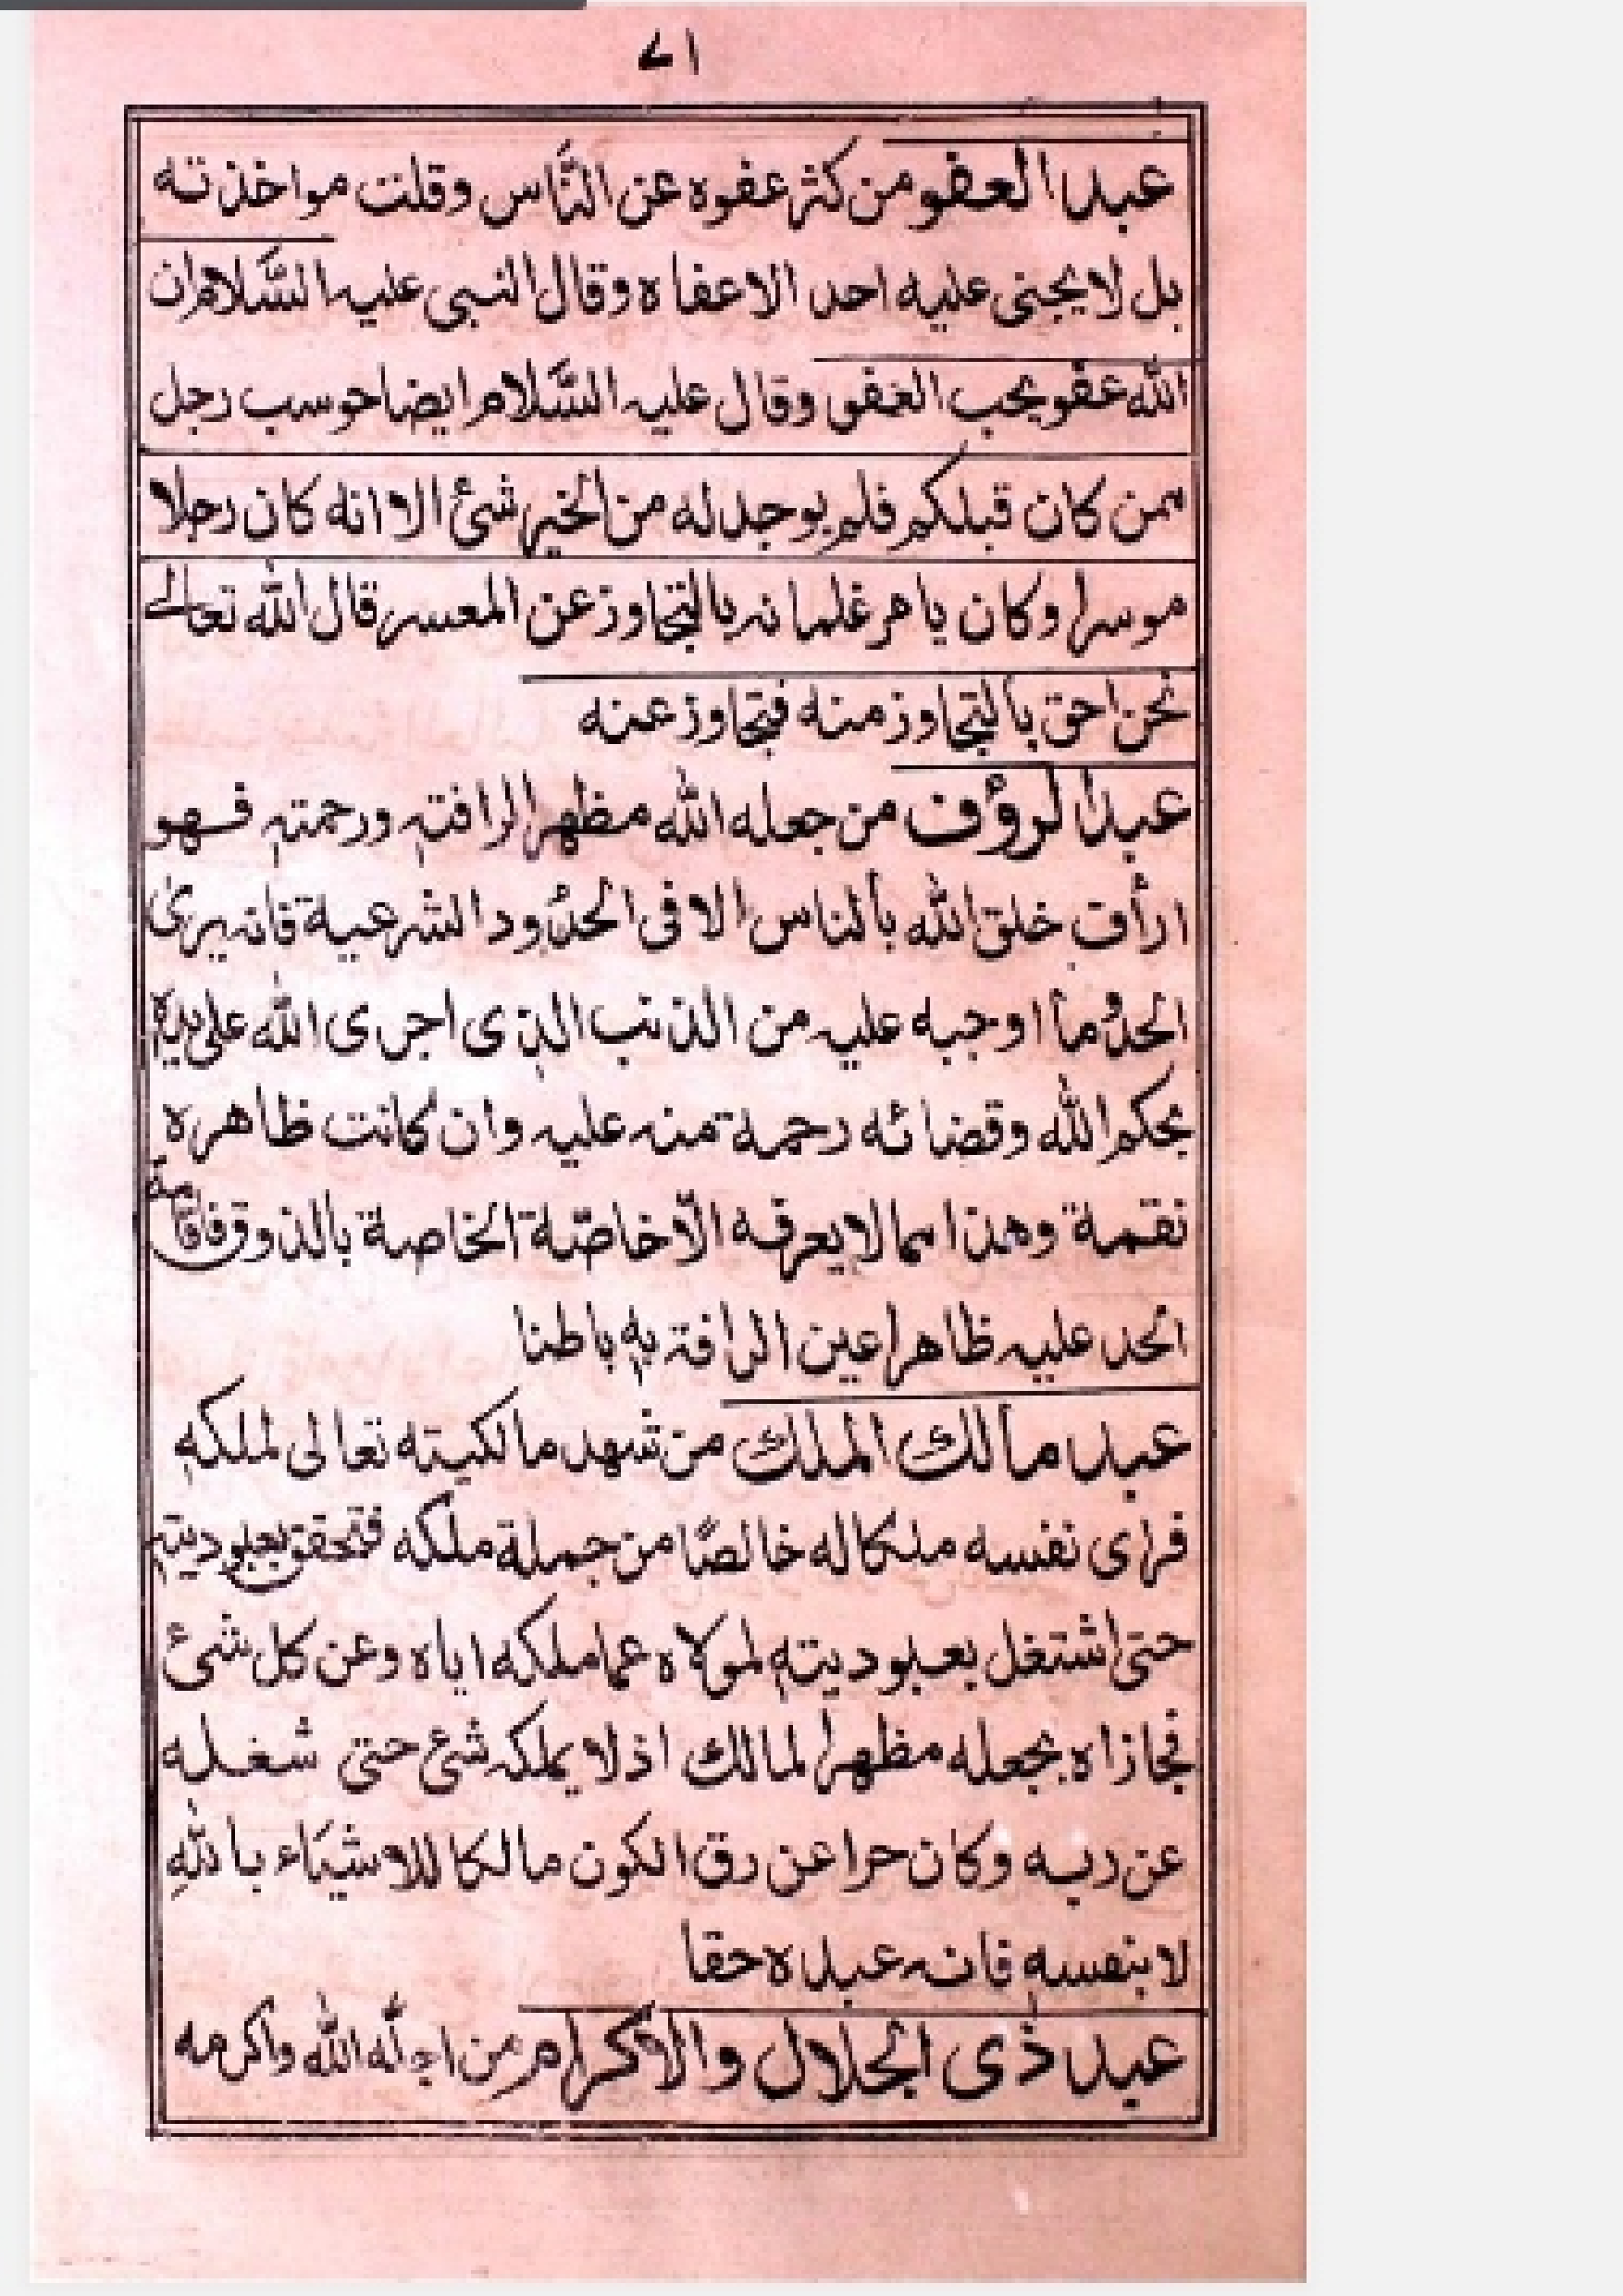 ٧١
عبد العفو من كثر عفوه عن النَّاس وقلت مواخذته
بل لا يجنى عليه احد الا عفاه وقال النبى عليه السَّلام ان
الله عفو يحب العفو وقال عليه السَّلام ايضا حوسب رجل
ممن كان قبلكم فلم يوجد له من الخير شئ الا انه كان رجلا
موسرا وكان يامر غلمانه بالتجاوز عن المعسر قال الله تعالى
نحن احق بالتجاوز منه فتجاوز عنه
عبد الرؤف من جعله الله مظهرا لرافته ورحمته فهو
ارأف خلق الله بالناس الا فى الحدود الشرعية فانه يرى
الحد وما اوجبه عليه من الذنب الذى اجرى الله على يده
بحكم الله وقضائه رحمة منه عليه وان كانت ظاهره
نقمة وهذا مما لا يعرفه الّا خاصّة الخاصة بالذوق فاقامة
الحد عليه ظاهرا عين الرافة به باطنا
عبد مالك الملك من شهد مالكيته تعالى لملكه
فراى نفسه ملكا له خالصًا من جملة ملكه فتحقق بعبوديته
حتى اشتغل بعبوديته لمولاه عما ملكه اياه وعن كل شئ
فجازاه بجعله مظهرا لمالك اذ لا يملكه شئ حتى شغله
عن ربه وكان حرا عن رق الكون مالكا للاشيَاء بالله
لا بنفسه فانه عبده حقا
عبد ذى الجلال والاكرام من اجلّه الله واكرمه